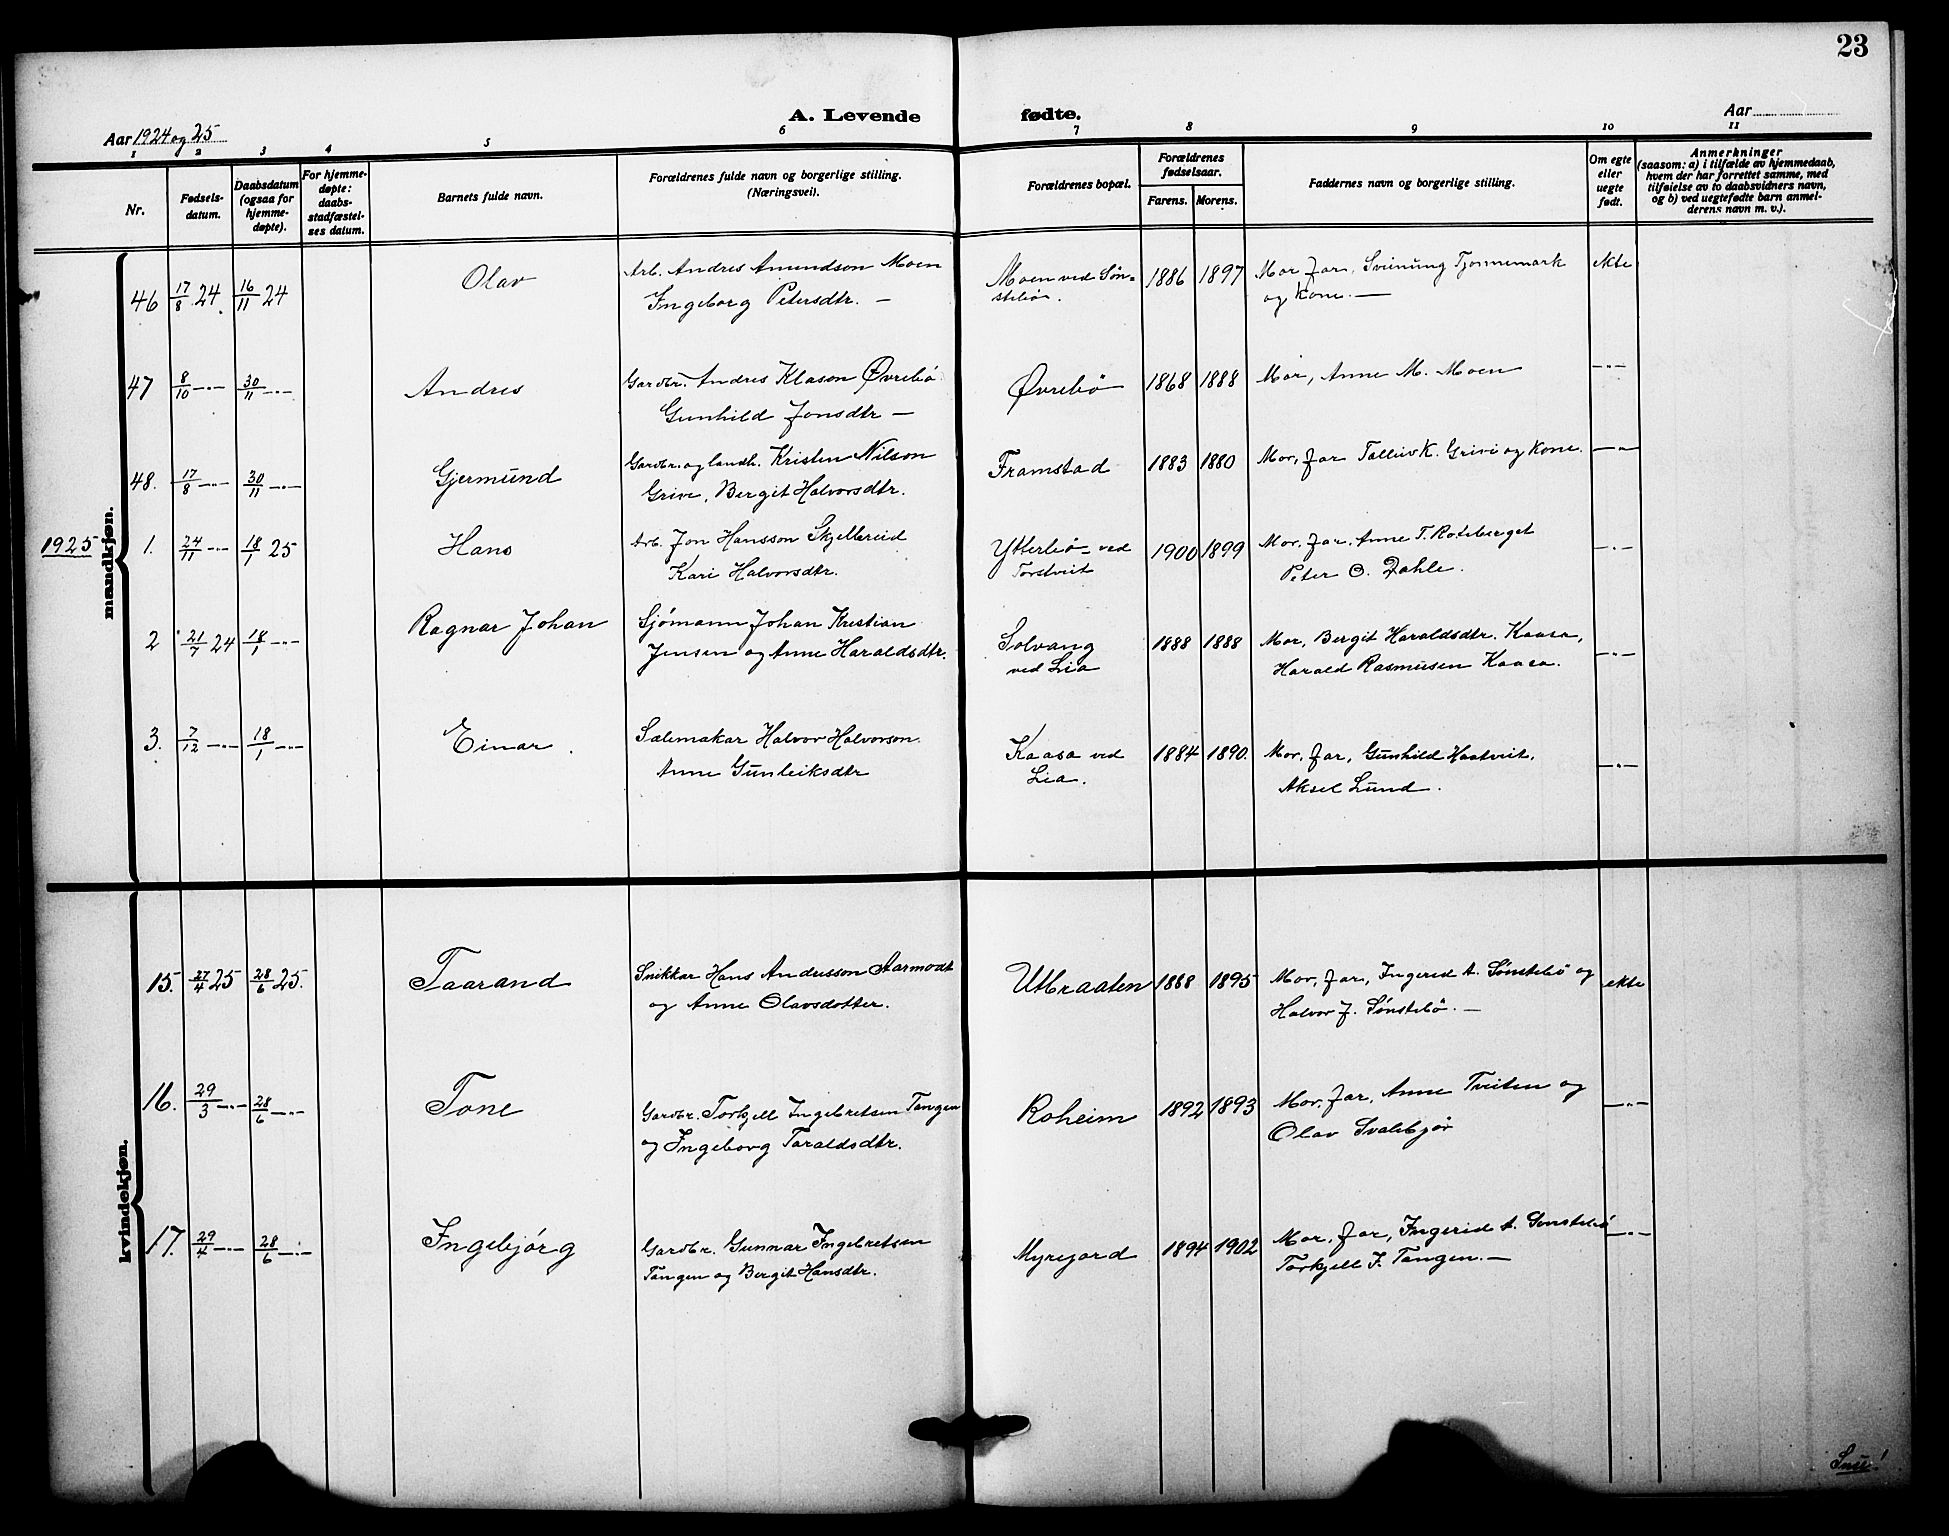 23
A. Levende fødte.
Aar 1924 og 25
Aar
1 2 3 4 5 6 7 8 9 10 11
Nr.
Fødsels-
datum.
Daabsdatum
(ogsaa for
hjemme-
døpte).
For hjemme-
døpte:
daabs-
stadfæstel-
ses datum.
Barnets fulde navn.
Forældrenes fulde navn og borgerlige stilling.
(Næringsvei).
Forældrenes bopæl.
Forældrenes
fødselsaar.
Farens. Morens.
Faddernes navn og borgerlige stilling.
Om egte
eller
uegte
født.
Anmerkninger
(saasom: a) i tilfælde av hjemmedaab,
hvem der har forrettet samme, med
tilføielse av to daabsvidners navn,
og b) ved uegtefødte barn anmel-
derens navn m. v.).
mandkjøn.
46 17/8 24 16/11 24 Olav Arb. Andres Amundson Moen Moen ved Søn= 1886 1897 Mor, far, Sveinung Tjønnemark ekte
Ingeborg Petersdtr. — stebø. og kone. —
47 8/10 —·— 30/11 —·— Andres Gardbr. Andres Klason Øvrebø Øvrebø 1868 1888 Mor, Anne M. Moen —·—
Gunhild Jonsdtr —
48. 17/8 —·— 30/11 —·— Gjermund Gardbr. og landh. Kristen Nilson Framstad 1883 1880 Mor, far Talleiv K. Grivi og kone. —·—
Grive, Bergit Halvorsdtr.
1925
1. 24/11 —·— 18/1 25 Hans Arb. Jon Hansson Skjellereid Ytterbø ved 1900 1899 Mor, far, Anne T. Roteberget —·—
Kari Halvorsdtr. Torstveit Peter O. Dahle.
2 21/7 24 18/1 —·— Ragnar Johan Sjømann Johan Kristian Solvang 1888 1888 Mor, Bergit Haraldsdtr. Kaasa, —·—
Jensen og Anne Haraldsdtr. ved Lia Harald Rasmusen Kaasa.
3. 7/12 —·— 18/1 —·— Einar. Salemakar Halvor Halvorson. Kaasa ved 1884 1890. Mor, far, Gunhild Haatveit, —·—
Anne Gunleiksdtr Lia. Aksel Lund.
kvindekjøn.
15. 27/4 25 28/6 25. Taarand Snikkar Hans Andresson Aarmodt Utbraaten 1888 1895 Mor, far, Ingerid A. Sønstebø og ekte
og Anne Olavsdotter. Halvor J. Sønstebø. —
16. 29/3 —·— 28/6 —·— Tone Gardbr. Torkjell Ingebretsen Tangen Roheim 1892 1893 Mor, far, Anne Tveiten og —·—
og Ingeborg Taraldsdtr. Olav Svalebjør
17. 29/4 —·— 28/6 —·— Ingebjörg Gardbr. Gunnar Ingebretsen Myrejord 1894 1902 Mor, far, Ingerid A. Sønstebø —·—
Tangen og Bergit Hansdtr. Torkjell I. Tangen. —
Snu!